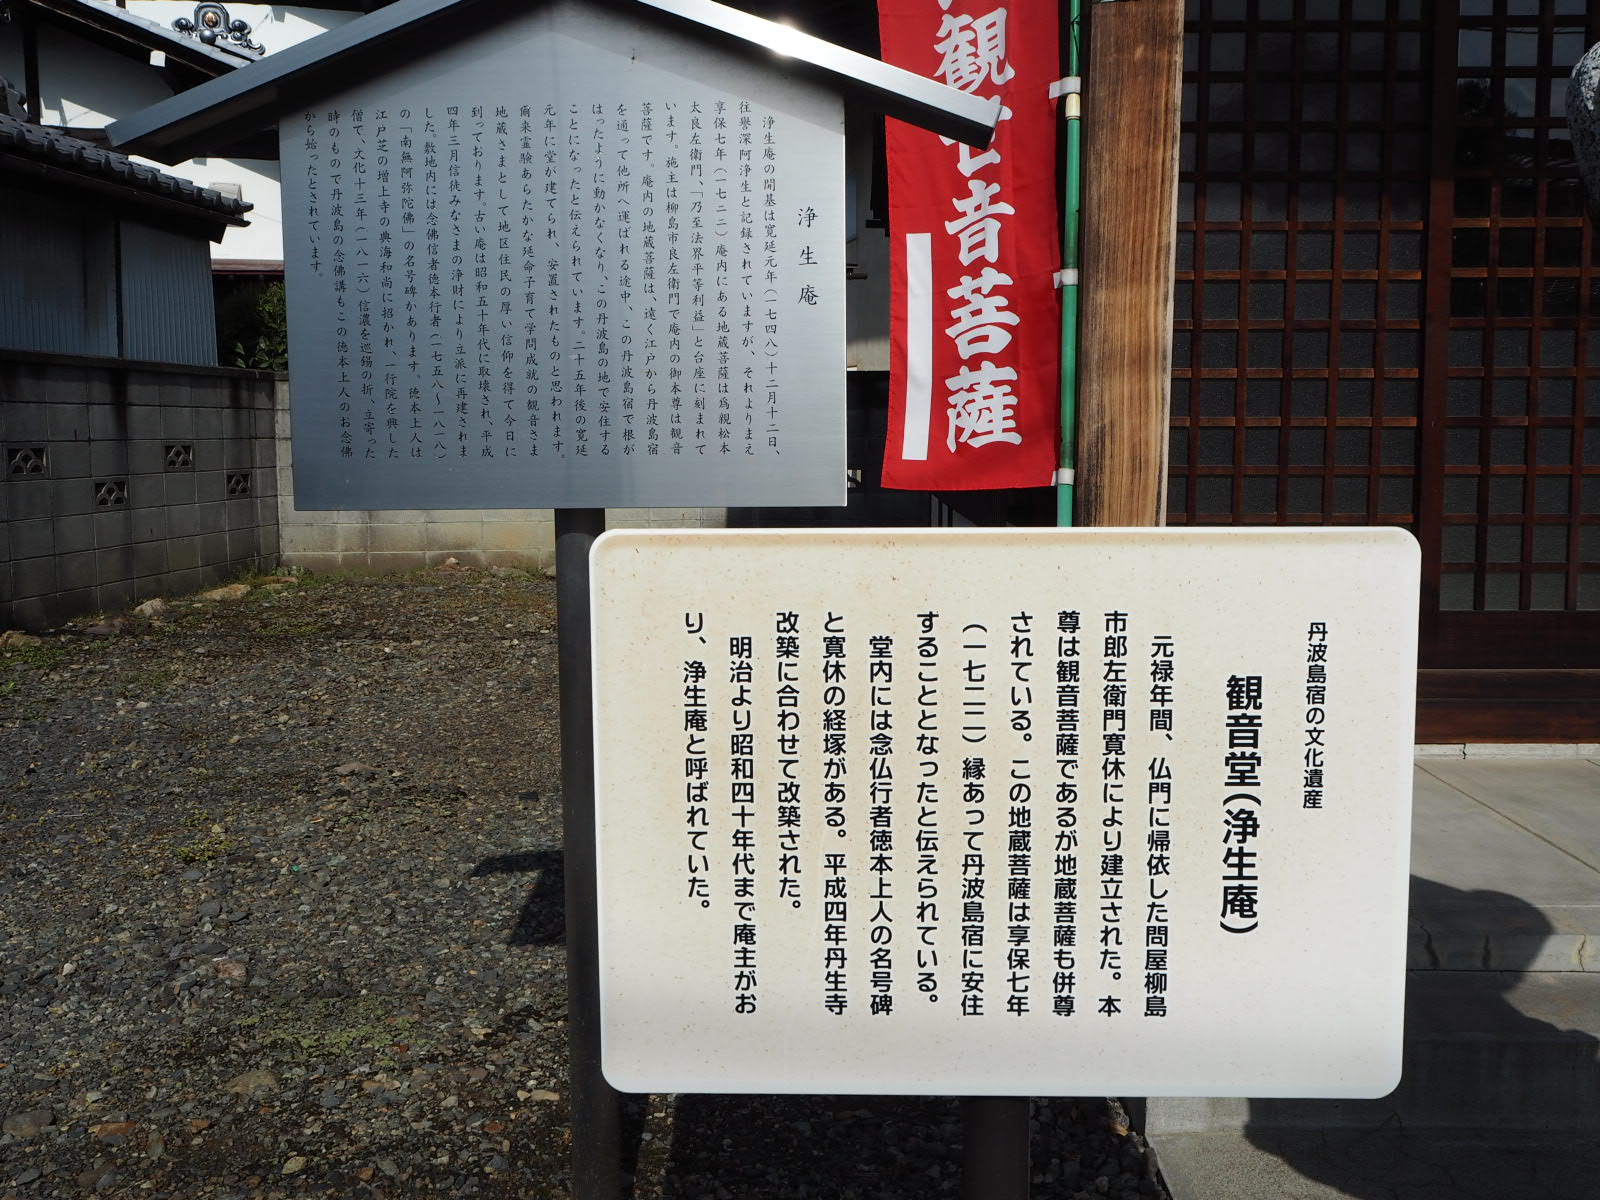 浄生庵
浄生庵の開基は寛延元年(一七四八)十二月十二日、
往誉深阿浄生と記録されていますが、それよりまえ
享保七年(一七二二)庵内にある地蔵菩薩は為親松本
太良左衛門、「乃至法界平等利益」と台座に刻まれて
います。施主は柳島市良左衛門で庵内の御本尊は観音
菩薩です。庵内の地蔵菩薩は、遠く江戸から丹波島宿
を通って他所へ運ばれる途中、この丹波島宿で根が
はったように動かなくなり、この丹波島の地で安住する
ことになったと伝えられています。二十五年後の寛延
元年に堂が建てられ、安置されたものと思われます。
爾来霊験あらたかな延命子育て学問成就の観音さま
地蔵さまとして地区住民の厚い信仰を得て今日に
到っております。古い庵は昭和五十年代に取壊され、平成
四年三月信徒みなさまの浄財により立派に再建されま
した。敷地内には念佛信者徳本行者(一七五八〜一八一八)
の「南無阿弥陀佛」の名号碑があります。徳本上人は
江戸芝の増上寺の典海和尚に招かれ、一行院を興した
僧で、文化十三年(一八一六)信濃を巡錫の折、立寄った
時のもので丹波島の念佛講もこの徳本上人のお念佛
から始ったとされています。
観世音菩薩
丹波島宿の文化遺産
観音堂(浄生庵)
元禄年間、仏門に帰依した問屋柳島
市郎左衛門寛休により建立された。本
尊は観音菩薩であるが地蔵菩薩も併尊
されている。この地蔵菩薩は享保七年
(一七二二)縁あって丹波島宿に安住
することとなったと伝えられている。
堂内には念仏行者徳本上人の名号碑
と寛休の経塚がある。平成四年丹生寺
改築に合わせて改築された。
明治より昭和四十年代まで庵主がお
り、浄生庵と呼ばれていた。